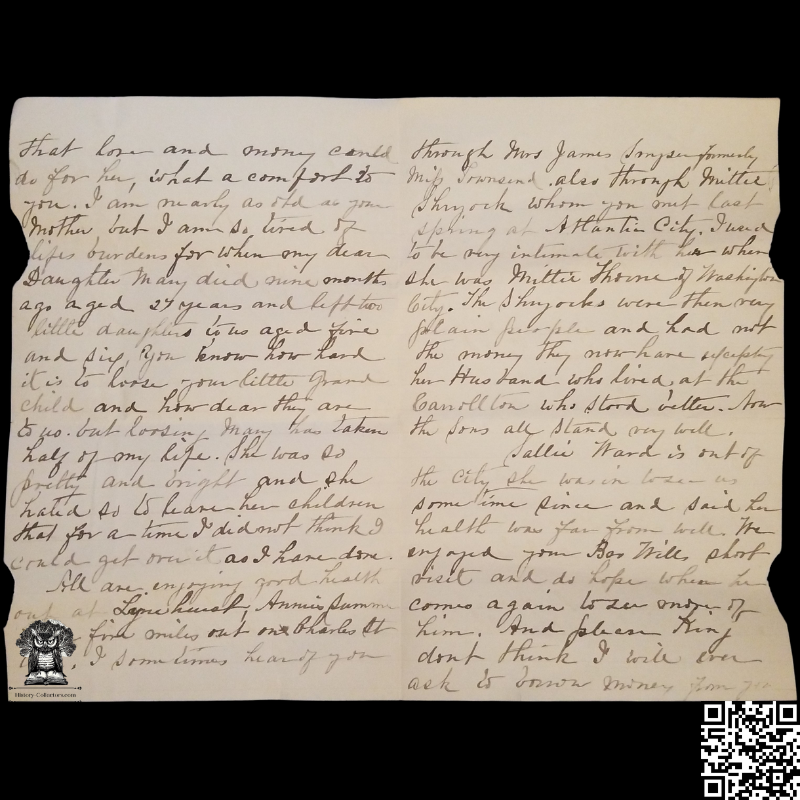 that love and money could
do for her, what a comfort to
you. I am nearly as old as your
Mother but I am so, tired of
lifes burdens for when my dear
Daughter Mary died nine months
ago aged 27 years and left two
little daughters to us aged five
and six, you know how hard
it is to loose your little Grand
child and how dear they are
to us. but loosing Mary has taken
half of my life. She was so
pretty and bright and she
hated so to leave her children
that for a time I did not think I
could get over it as I have done.
All are enjoying good health
out at Lynehurst, Annies Summer
five miles out on Charles St
I sometimes hear of you
through Mrs James Smyser formerly
Miss Townsend. also through Mittie
Shryock whom you met last
spring at Atlantic City. I used
to be very intimate with her when
she was Mittie Thorne of Washington
City. The Shryocks were then very
plain people and had not
the money they now have excepting
her Husband who lived at the
Carrollton who stood better. Now
the sons all stand very well.
Sallie Ward is out of
the city she was in to see us
some time since and said her
health was far from well. We
enjoyed your Boy Wills short
visit and do hope when he
comes again to see more of
him. And please King
dont think I will ever
ask to borrow money from you
History-Collectors.com